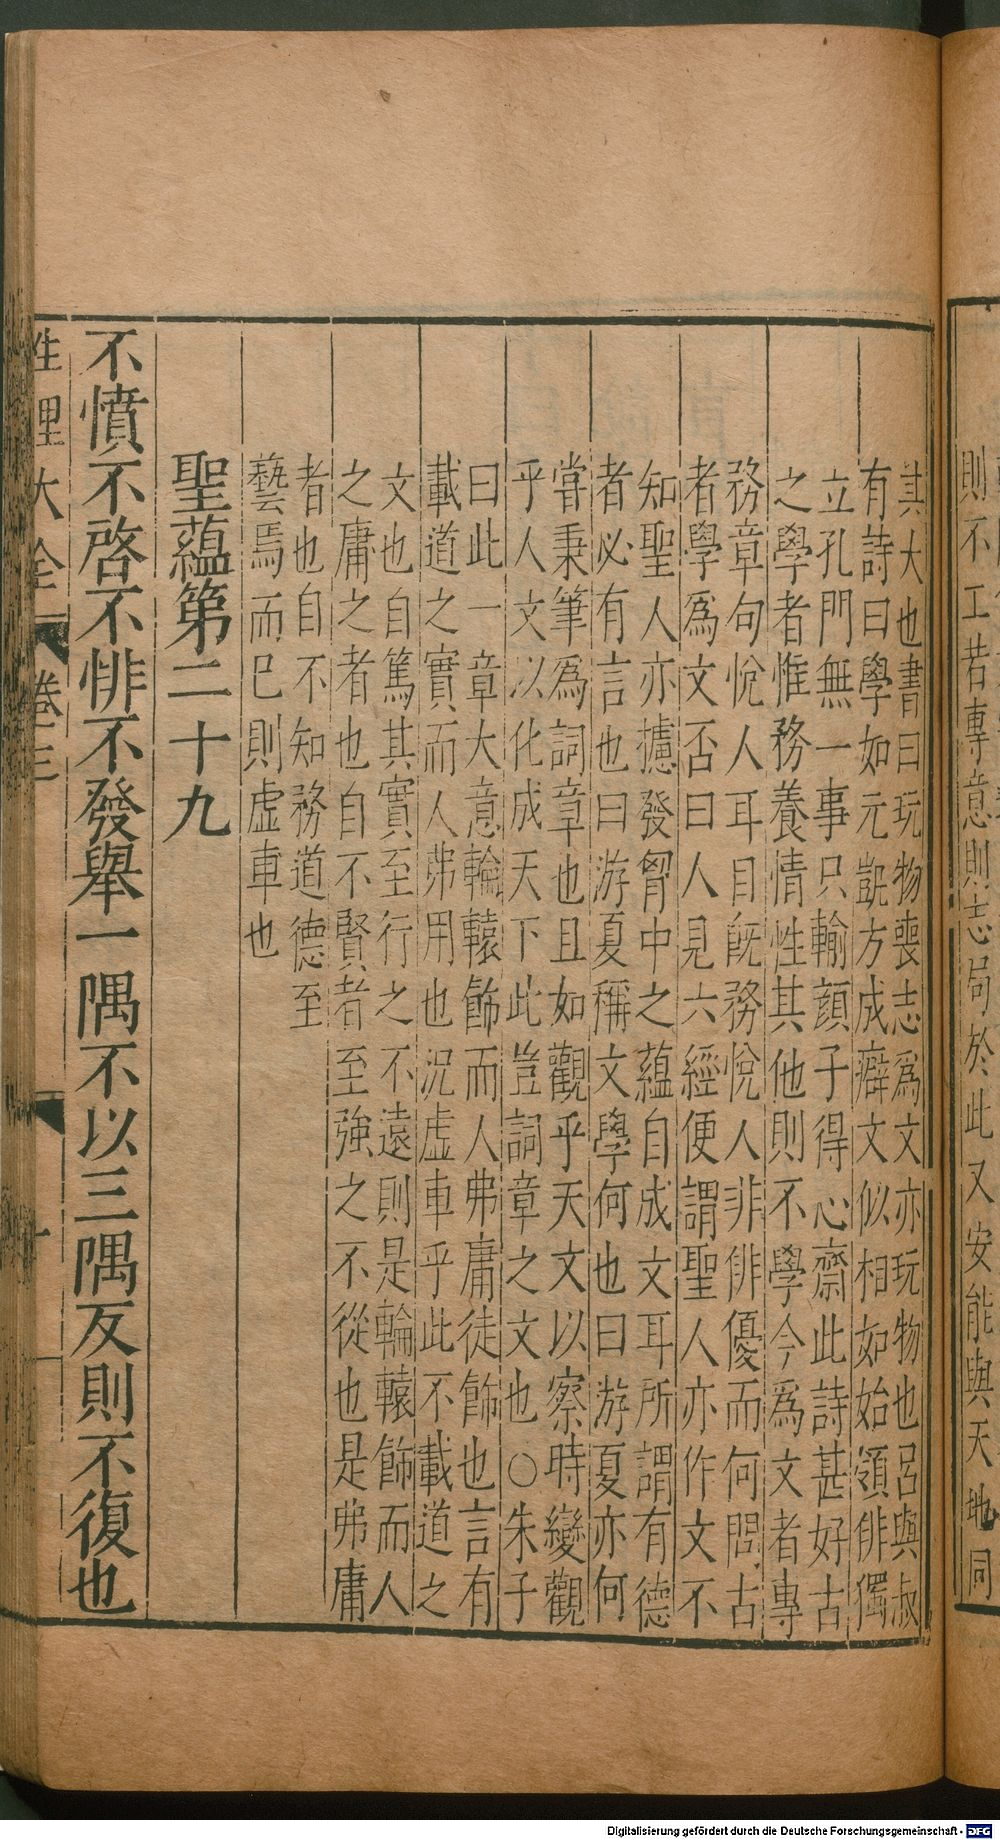 則不工若專意則志局於此又安能與天地同
其大也書曰玩物喪志爲文亦玩物也呂與叔
有詩曰學如元凱方成癖文似相如始類俳獨
立孔門無一事只輸顔子得心齋此詩甚好古
之學者惟務養情性其他則不學今爲文者專
務章句悅人耳目旣務悅人非俳優而何問古
者學爲文否曰人見六經便謂聖人亦作文不
知聖人亦攄發胷中之蘊自成文耳所謂有德
者必有言也曰游夏稱文學何也曰游夏亦何
嘗秉筆爲詞章也且如觀乎天文以察時變觀
乎人文以化成天下此豈詞章之文也○朱子
曰此一章大意輪轅飾而人弗庸徒飾也言有
載道之實而人弗用也況虛車乎此不載道之
文也自篤其實至行之不遠則是輪轅飾而人
之庸之者也自不賢者至強之不從也是弗庸
者也自不知務道德至
藝焉而巳則虛車也
聖蘊第二十九
不憤不啓不悱不發舉一隅不以三隅反則不復也
性理大全 卷三